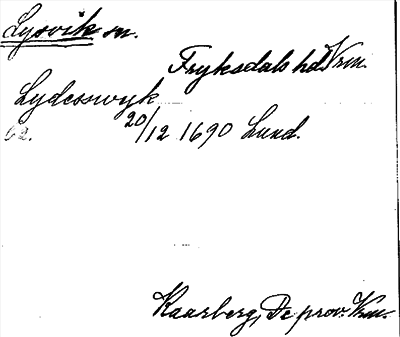 Lysvik sn.
Fryksdals hd Vrm.
Lydesswyk
62. 20/12 1690 Lund.
Kaarberg, De prov. Vrm.